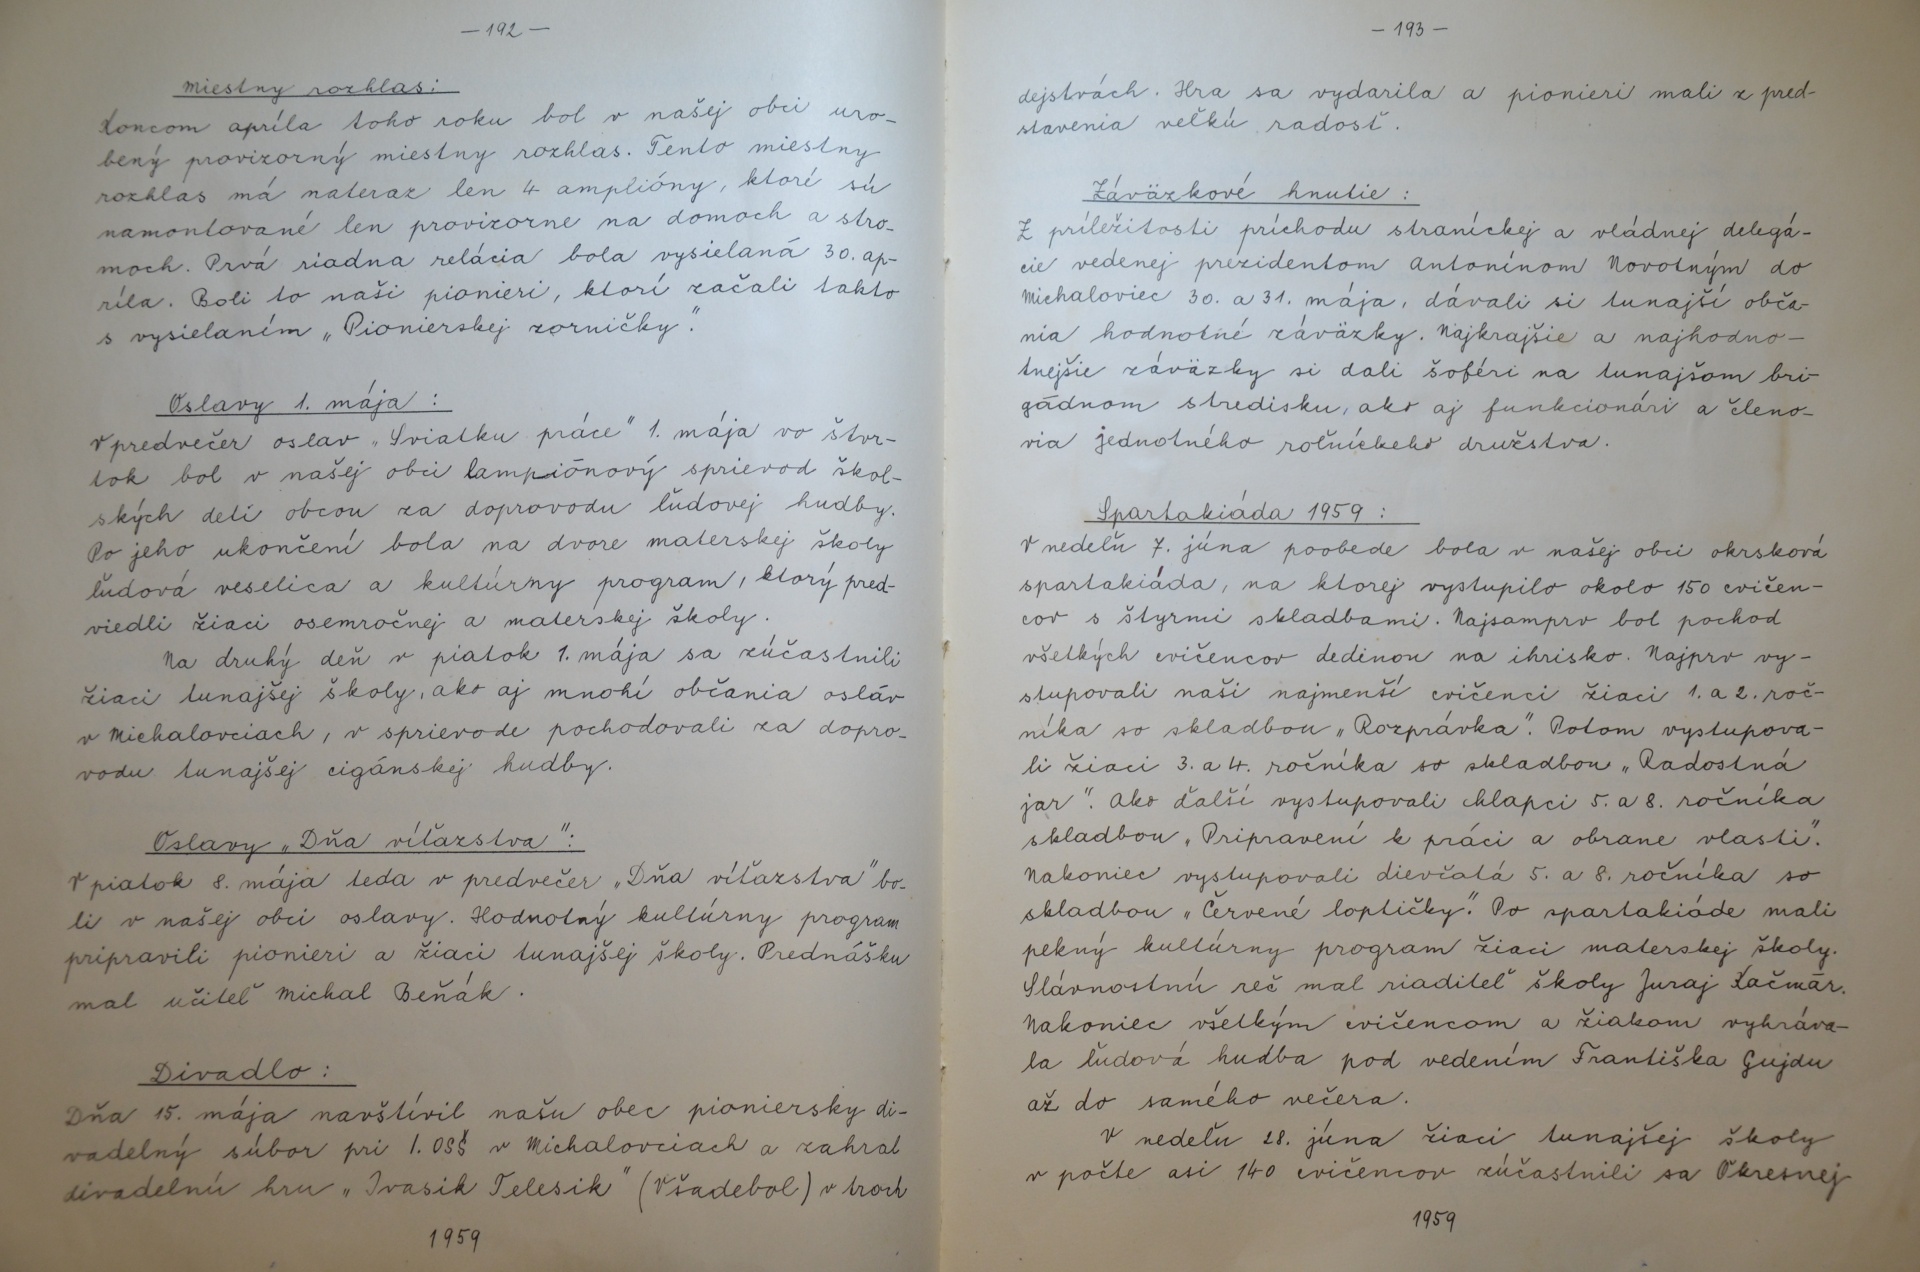 — 192 —
Miestny rozhlas:
Koncom apríla toho roku bol v našej obci uro-
bený provizorný miestny rozhlas. Tento miestny
rozhlas má nateraz len 4 amplióny, ktoré sú
namontované len provizorne na domoch a stro-
moch. Prvá riadna relácia bola vysielaná 30. ap-
ríla. Boli to naši pionieri, ktorí začali takto
s vysielaním „Pionierskej zorničky".
Oslavy 1. mája :
V predvečer osláv „Sviatku práce" 1. mája vo štvr-
tok bol v našej obci lampiónový sprievod škol-
ských detí obcou za doprovodu ľudovej hudby.
Po jeho ukončení bola na dvore materskej školy
ľudová veselica a kultúrny program, ktorý pred-
viedli žiaci osemročnej a materskej školy.
Na druhý deň v piatok 1. mája sa zúčastnili
žiaci tunajšej školy, ako aj mnohí občania osláv
v Michalovciach, v sprievode pochodovali za dopro-
vodu tunajšej cigánskej hudby.
Oslavy „Dňa víťazstva":
V piatok 8. mája teda v predvečer „Dňa víťazstva" bo-
li v našej obci oslavy. Hodnotný kultúrny program
pripravili pionieri a žiaci tunajšej školy. Prednášku
mal učiteľ Michal Beňák.
Divadlo :
Dňa 15. mája navštívil našu obec pioniersky di-
vadelný súbor pri I. OSŠ v Michalovciach a zahral
divadelnú hru „Ivasik Telesik" (Všadebol) v troch
1959
— 193 —
dejstvách. Hra sa vydarila a pionieri mali z pred-
stavenia veľkú radosť.
Záväzkové hnutie :
Z príležitosti príchodu straníckej a vládnej delegá-
cie vedenej prezidentom Antonínom Novotným do
Michaloviec 30. a 31. mája, dávali si tunajší obča-
nia hodnotné záväzky. Najkrajšie a najhodno-
tnejšie záväzky si dali šoféri na tunajšom bri-
gádnom stredisku, ako aj funkcionári a členo-
via jednotného roľníckeho družstva.
Spartakiáda 1959 :
V nedeľu 7. júna poobede bola v našej obci okrsková
spartakiáda, na ktorej vystupilo okolo 150 cvičen-
cov s štyrmi skladbami. Najsamprv bol pochod
všetkých cvičencov dedinou na ihrisko. Najprv vy-
stupovali naši najmenší cvičenci žiaci 1. a 2. roč-
níka so skladbou „Rozprávka". Potom vystupova-
li žiaci 3. a 4. ročníka so skladbou „Radostná
jar". Ako ďalší vystupovali chlapci 5. a 8. ročníka
skladbou „Pripravení k práci a obrane vlasti".
Nakoniec vystupovali dievčatá 5. a 8. ročníka so
skladbou „Červené loptičky". Po spartakiáde mali
pekný kultúrny program žiaci materskej školy.
Slávnostnú reč mal riaditeľ školy Juraj Kačmár.
Nakoniec všetkým cvičencom a žiakom vyhráva-
la ľudová hudba pod vedením Františka Gujdu
až do samého večera.
V nedeľu 28. júna žiaci tunajšej školy
v počte asi 140 cvičencov zúčastnili sa Okresnej
1959